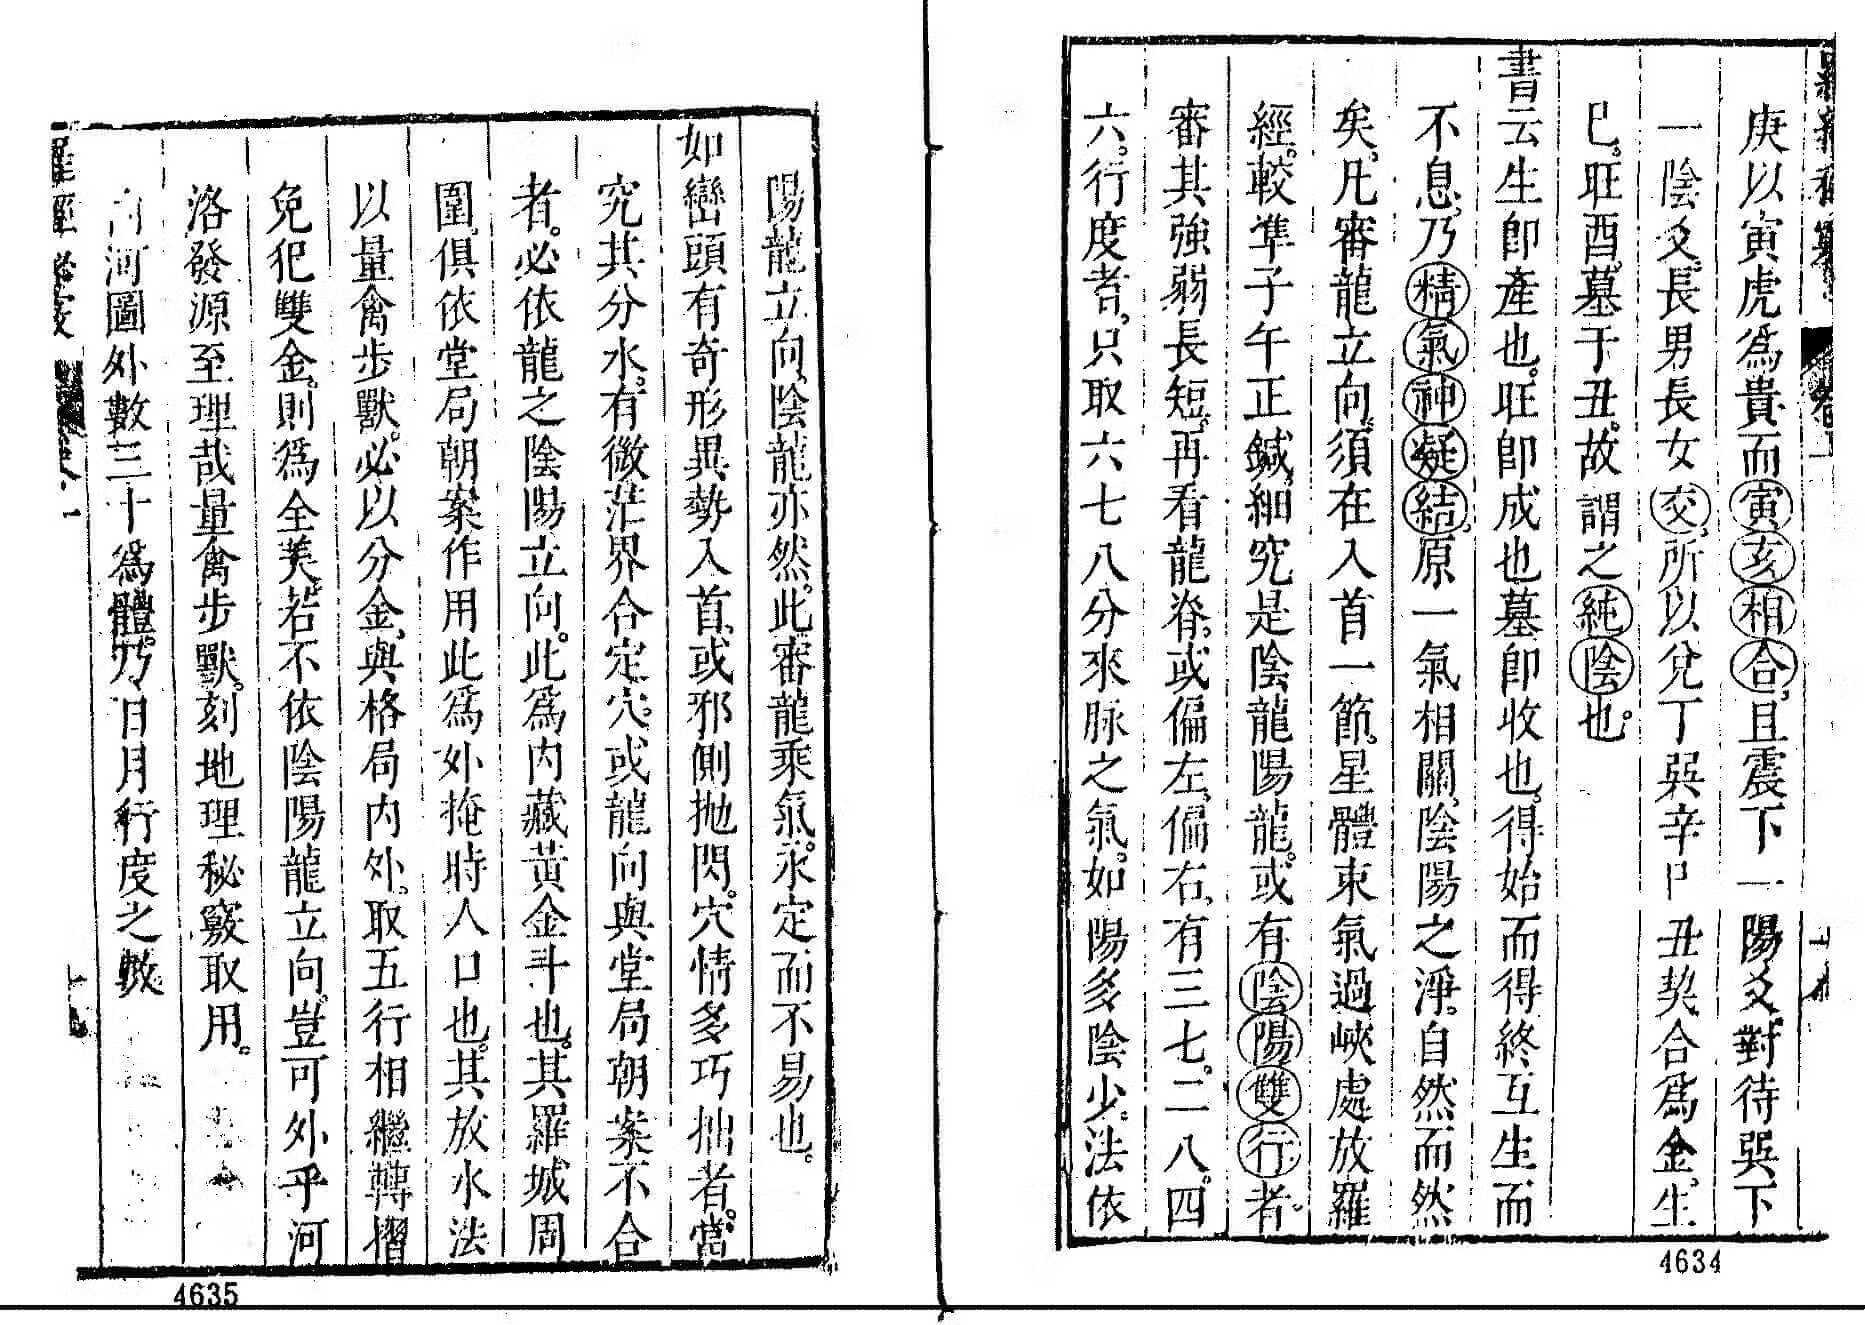 庚以寅虎爲貴而寅亥相合且震下一陽爻對待巽下
一陰爻長男長女交所以兌丁巽辛巳丑契合爲金生
巳旺酉墓于丑故謂之純陰也
書云生卽產也旺卽成也墓卽收也得始而得終互生而
不息乃精氣神凝結原一氣相關陰陽之淨自然而然
矣凡審龍立向須在入首一節星體束氣過峽處放羅
經較準子午正鍼細究是陰龍陽龍或有陰陽雙行者
審其強弱長短再看龍脊或偏左偏右有三七二八四
六行度者只取六七八分來脉之氣如陽多陰少法依
4634
陽龍立向陰龍亦然此審龍乘氣永定而不易也
如巒頭有奇形異勢入首或邪側抛閃穴情多巧拙者當
究其分水有微茫界合定穴或龍向與堂局朝案不合
者必依龍之陰陽立向此爲內藏黃金斗也其羅城周
圍俱依堂局朝案作用此爲外掩時人口也其放水法
以量禽步獸必以分金與格局內外取五行相繼轉摺
免犯雙金則爲全美若不依陰陽龍立向豈可外乎河
洛發源至理哉量禽步獸刻地理秘竅取用
河圖外數三十爲體乃日月行度之數
4635